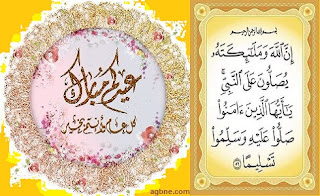 عيدكم مبارك
كل عام وأنتم بخير
بسم الله الرحمن الرحيم
إِنَّ ٱللَّهَ وَمَلَٰٓئِكَتَهُۥ
يُصَلُّونَ عَلَى ٱلنَّبِيِّۚ
يَٰٓأَيُّهَا ٱلَّذِينَ ءَامَنُوا۟
صَلُّوا۟ عَلَيْهِ وَسَلِّمُوا۟
تَسْلِيمًا ٥٦
agbne.com